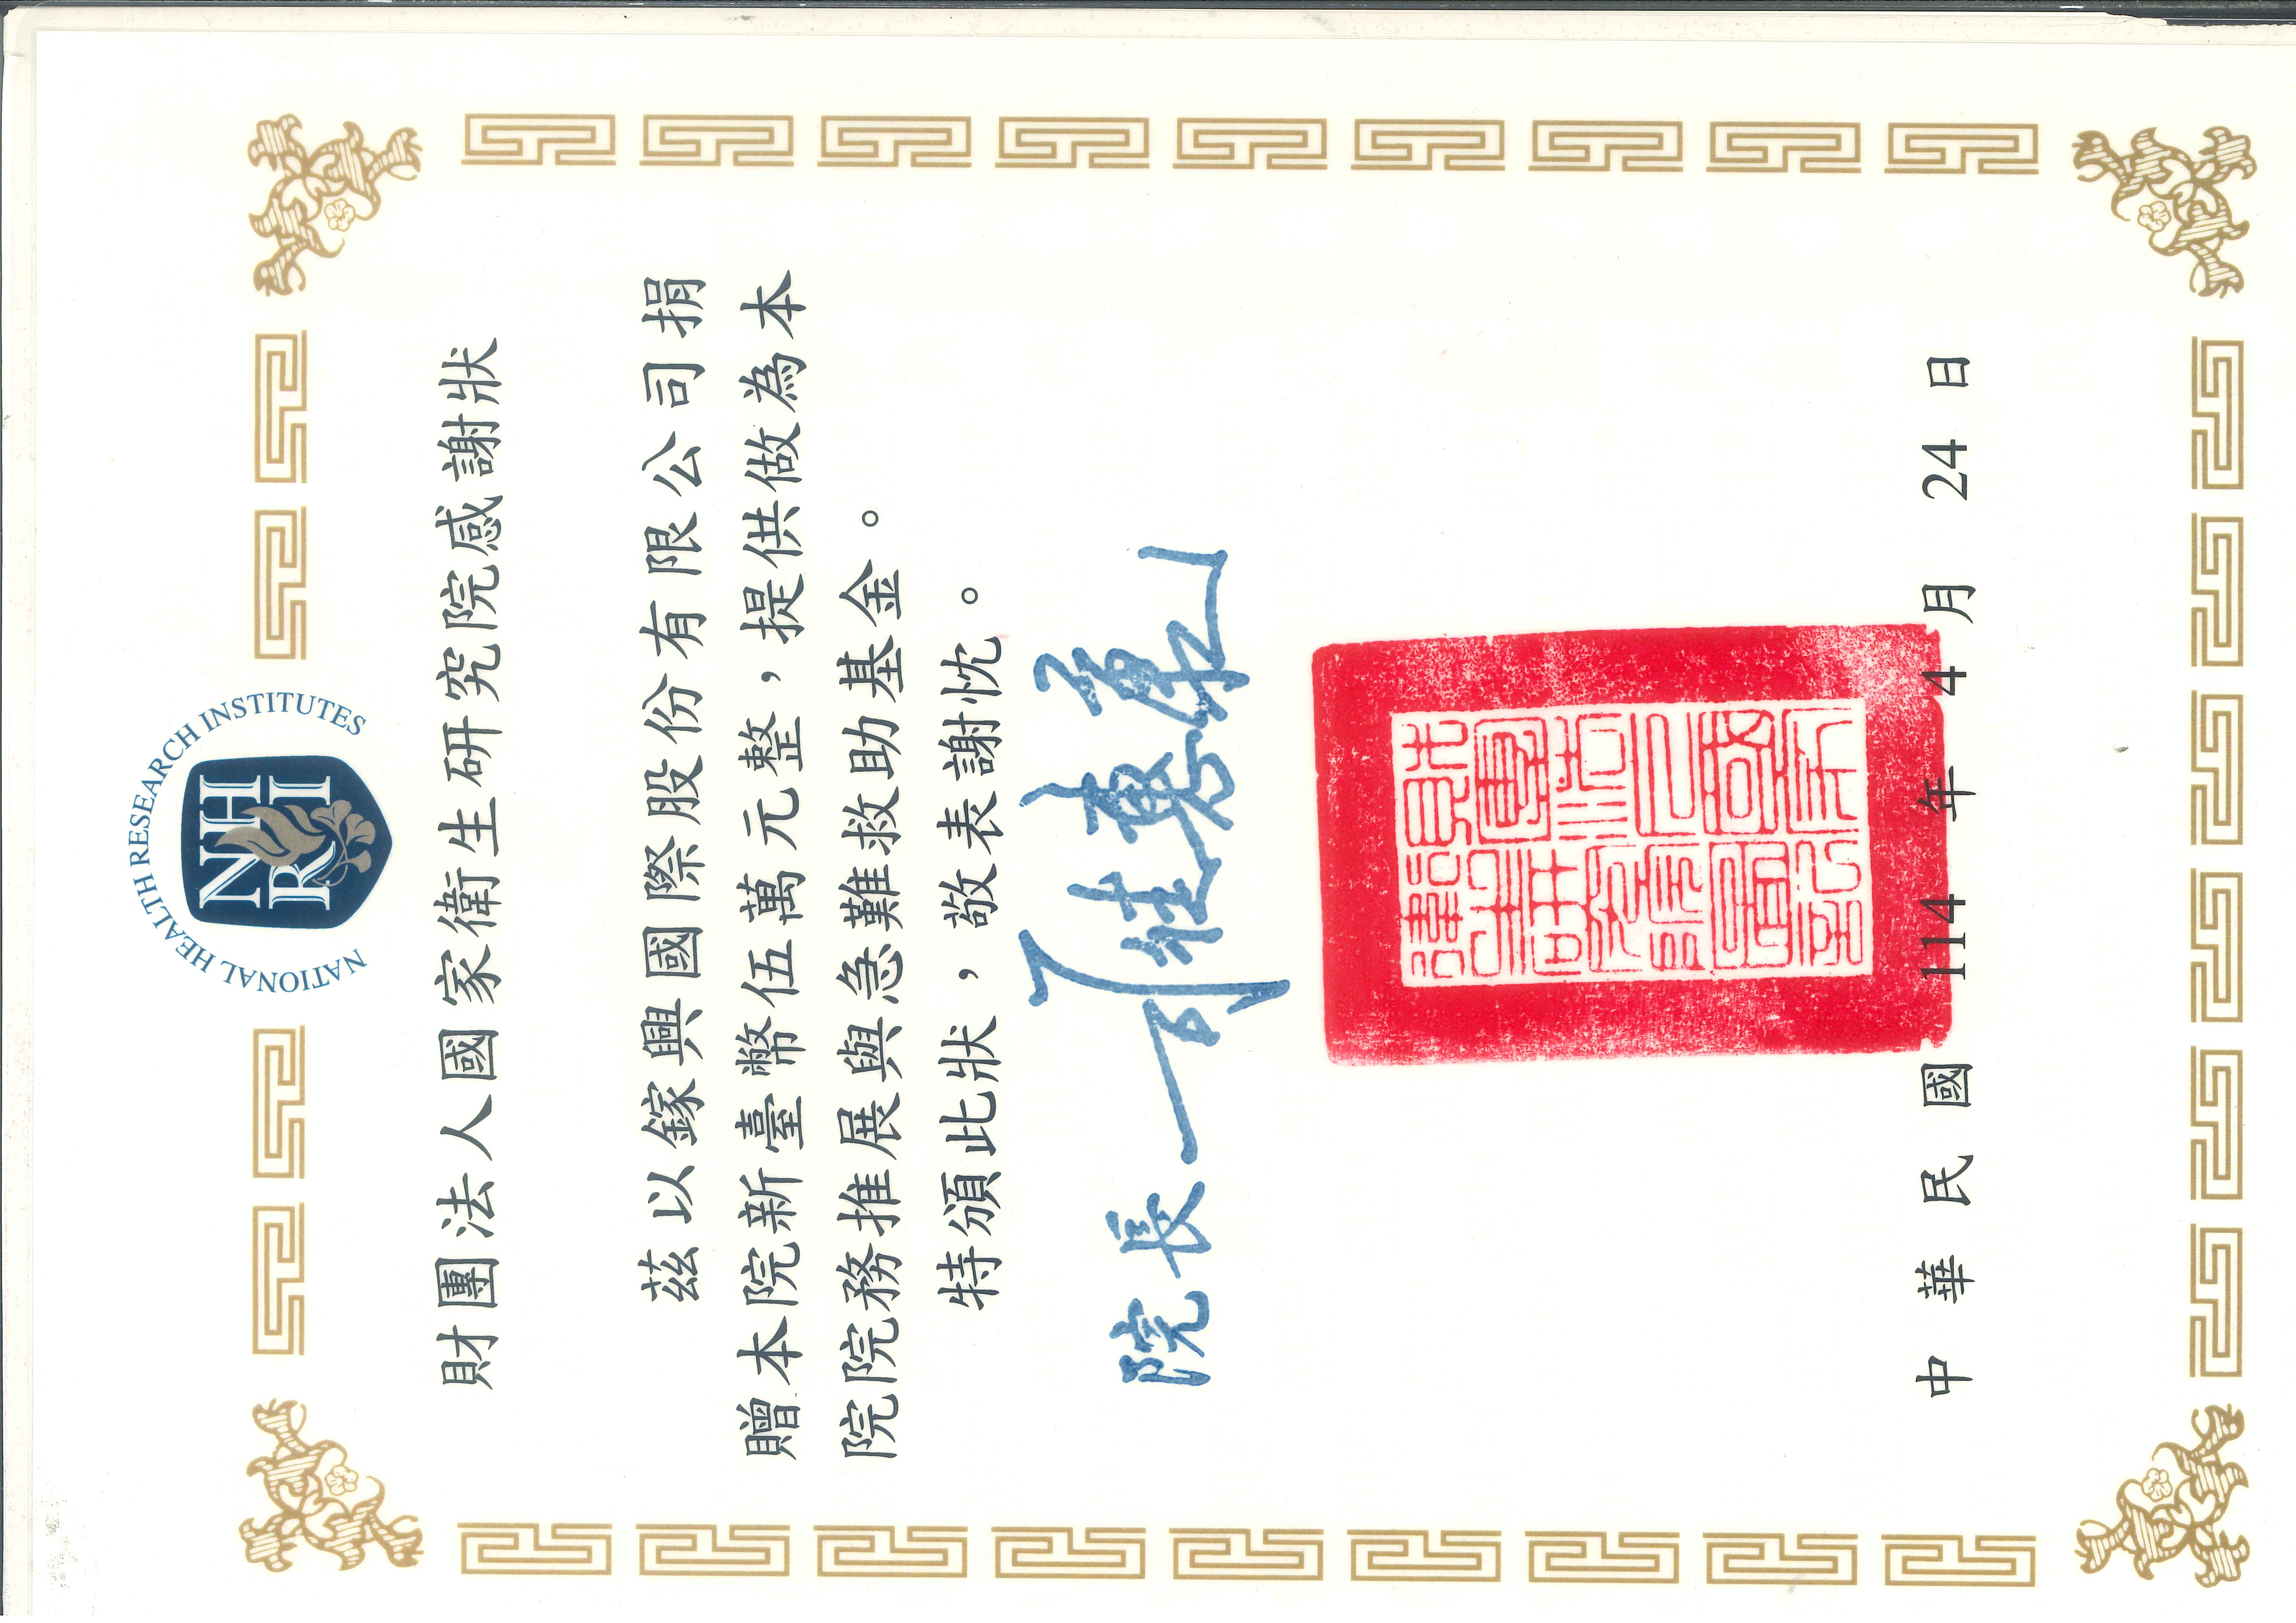 NATIONAL HEALTH RESEARCH INSTITUTES
NH
RI
財團法人國家衛生研究院感謝狀
茲以鎵興國際股份有限公司捐
贈本院新臺幣伍萬元整，提供做為本
院院務推展與急難救助基金。
特頒此狀，敬表謝忱。
院長 司徒惠康
中華民國 114 年 4 月 24 日